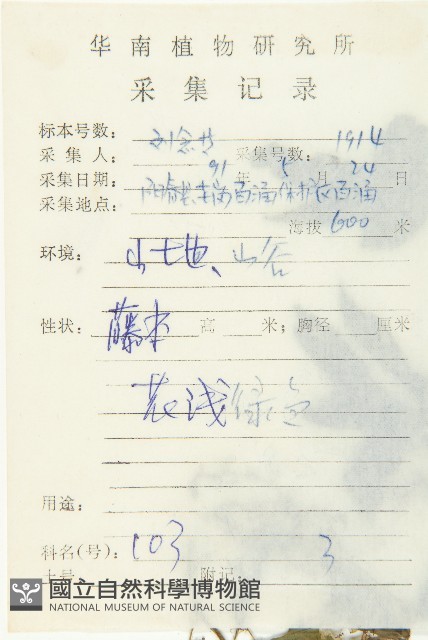 华南植物研究所
采集记录
标本号数：
采集人： 刘念 采集号数： 1914
采集日期： 91 年 5 月 24 日
采集地点： 保护区
海拔 600 米
环境： 山地、山谷
性状： 藤本 高 米；胸径 厘米
花浅绿色
用途：
科名(号)： 103 3
土名 附记：
國立自然科學博物館
NATIONAL MUSEUM OF NATURAL SCIENCE